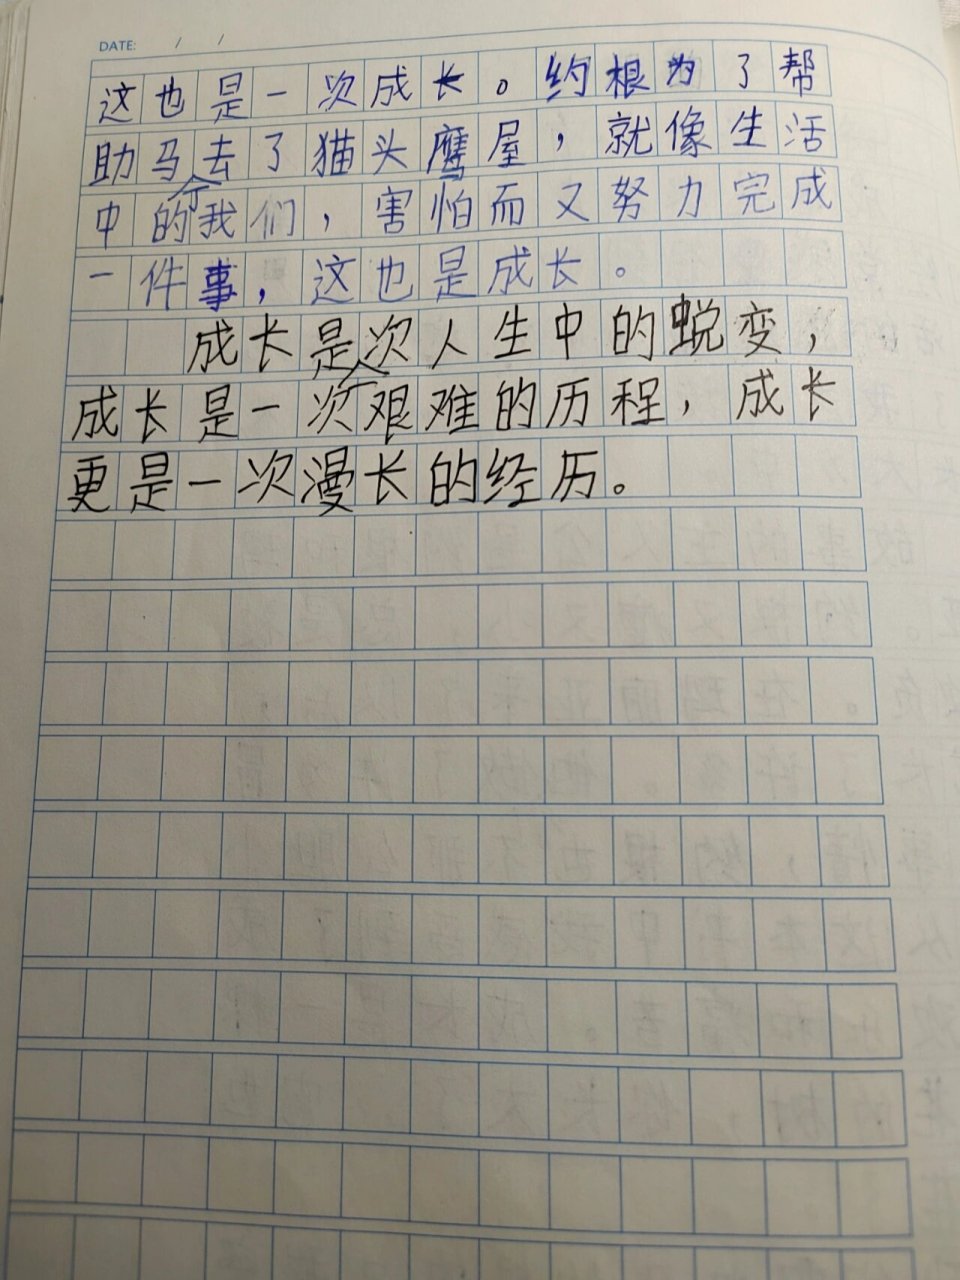 DATE: / /
这也是一次成长。约根为了帮
助马去了猫头鹰屋，就像生活
中的我们，害怕而又努力完成
一件事，这也是成长。
成长是一次人生中的蜕变，
成长是一次艰难的历程，成长
更是一次漫长的经历。